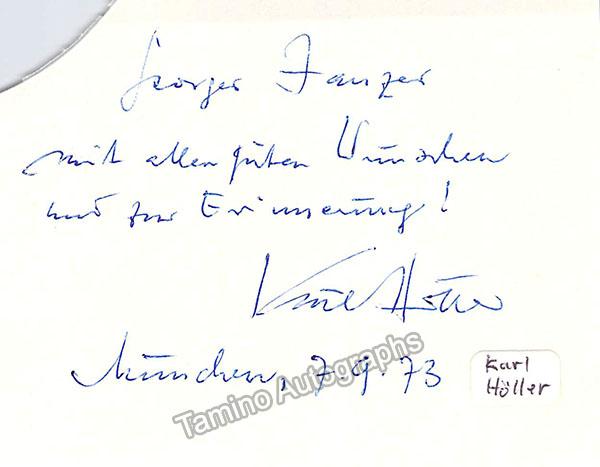 Georges Janzer
mit allen guten Wünschen
und zur Erinnerung!
Karl Höller
München, 7.9.73
Karl
Höller
Tamino Autographs